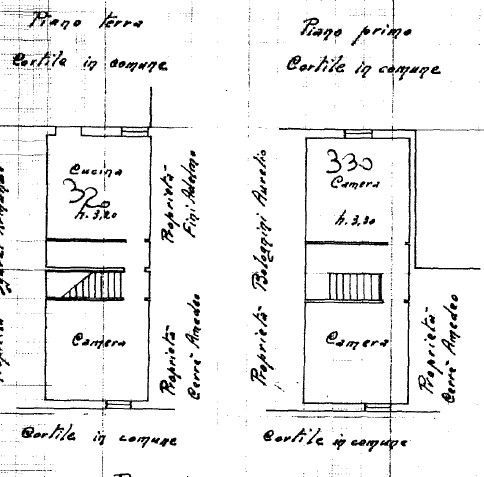 Piano terra
Cortile in comune
Cucina
320
h. 3,20
Camera
Proprietà
Fini Adelmo
Proprietà
Cerrè Amedeo
Cortile in comune
Piano primo
Cortile in comune
330
Camera
h. 3,30
Camera
Proprietà Bolognini Aurelio
Proprietà
Proprietà
Cerrè Amedeo
Cortile in comune